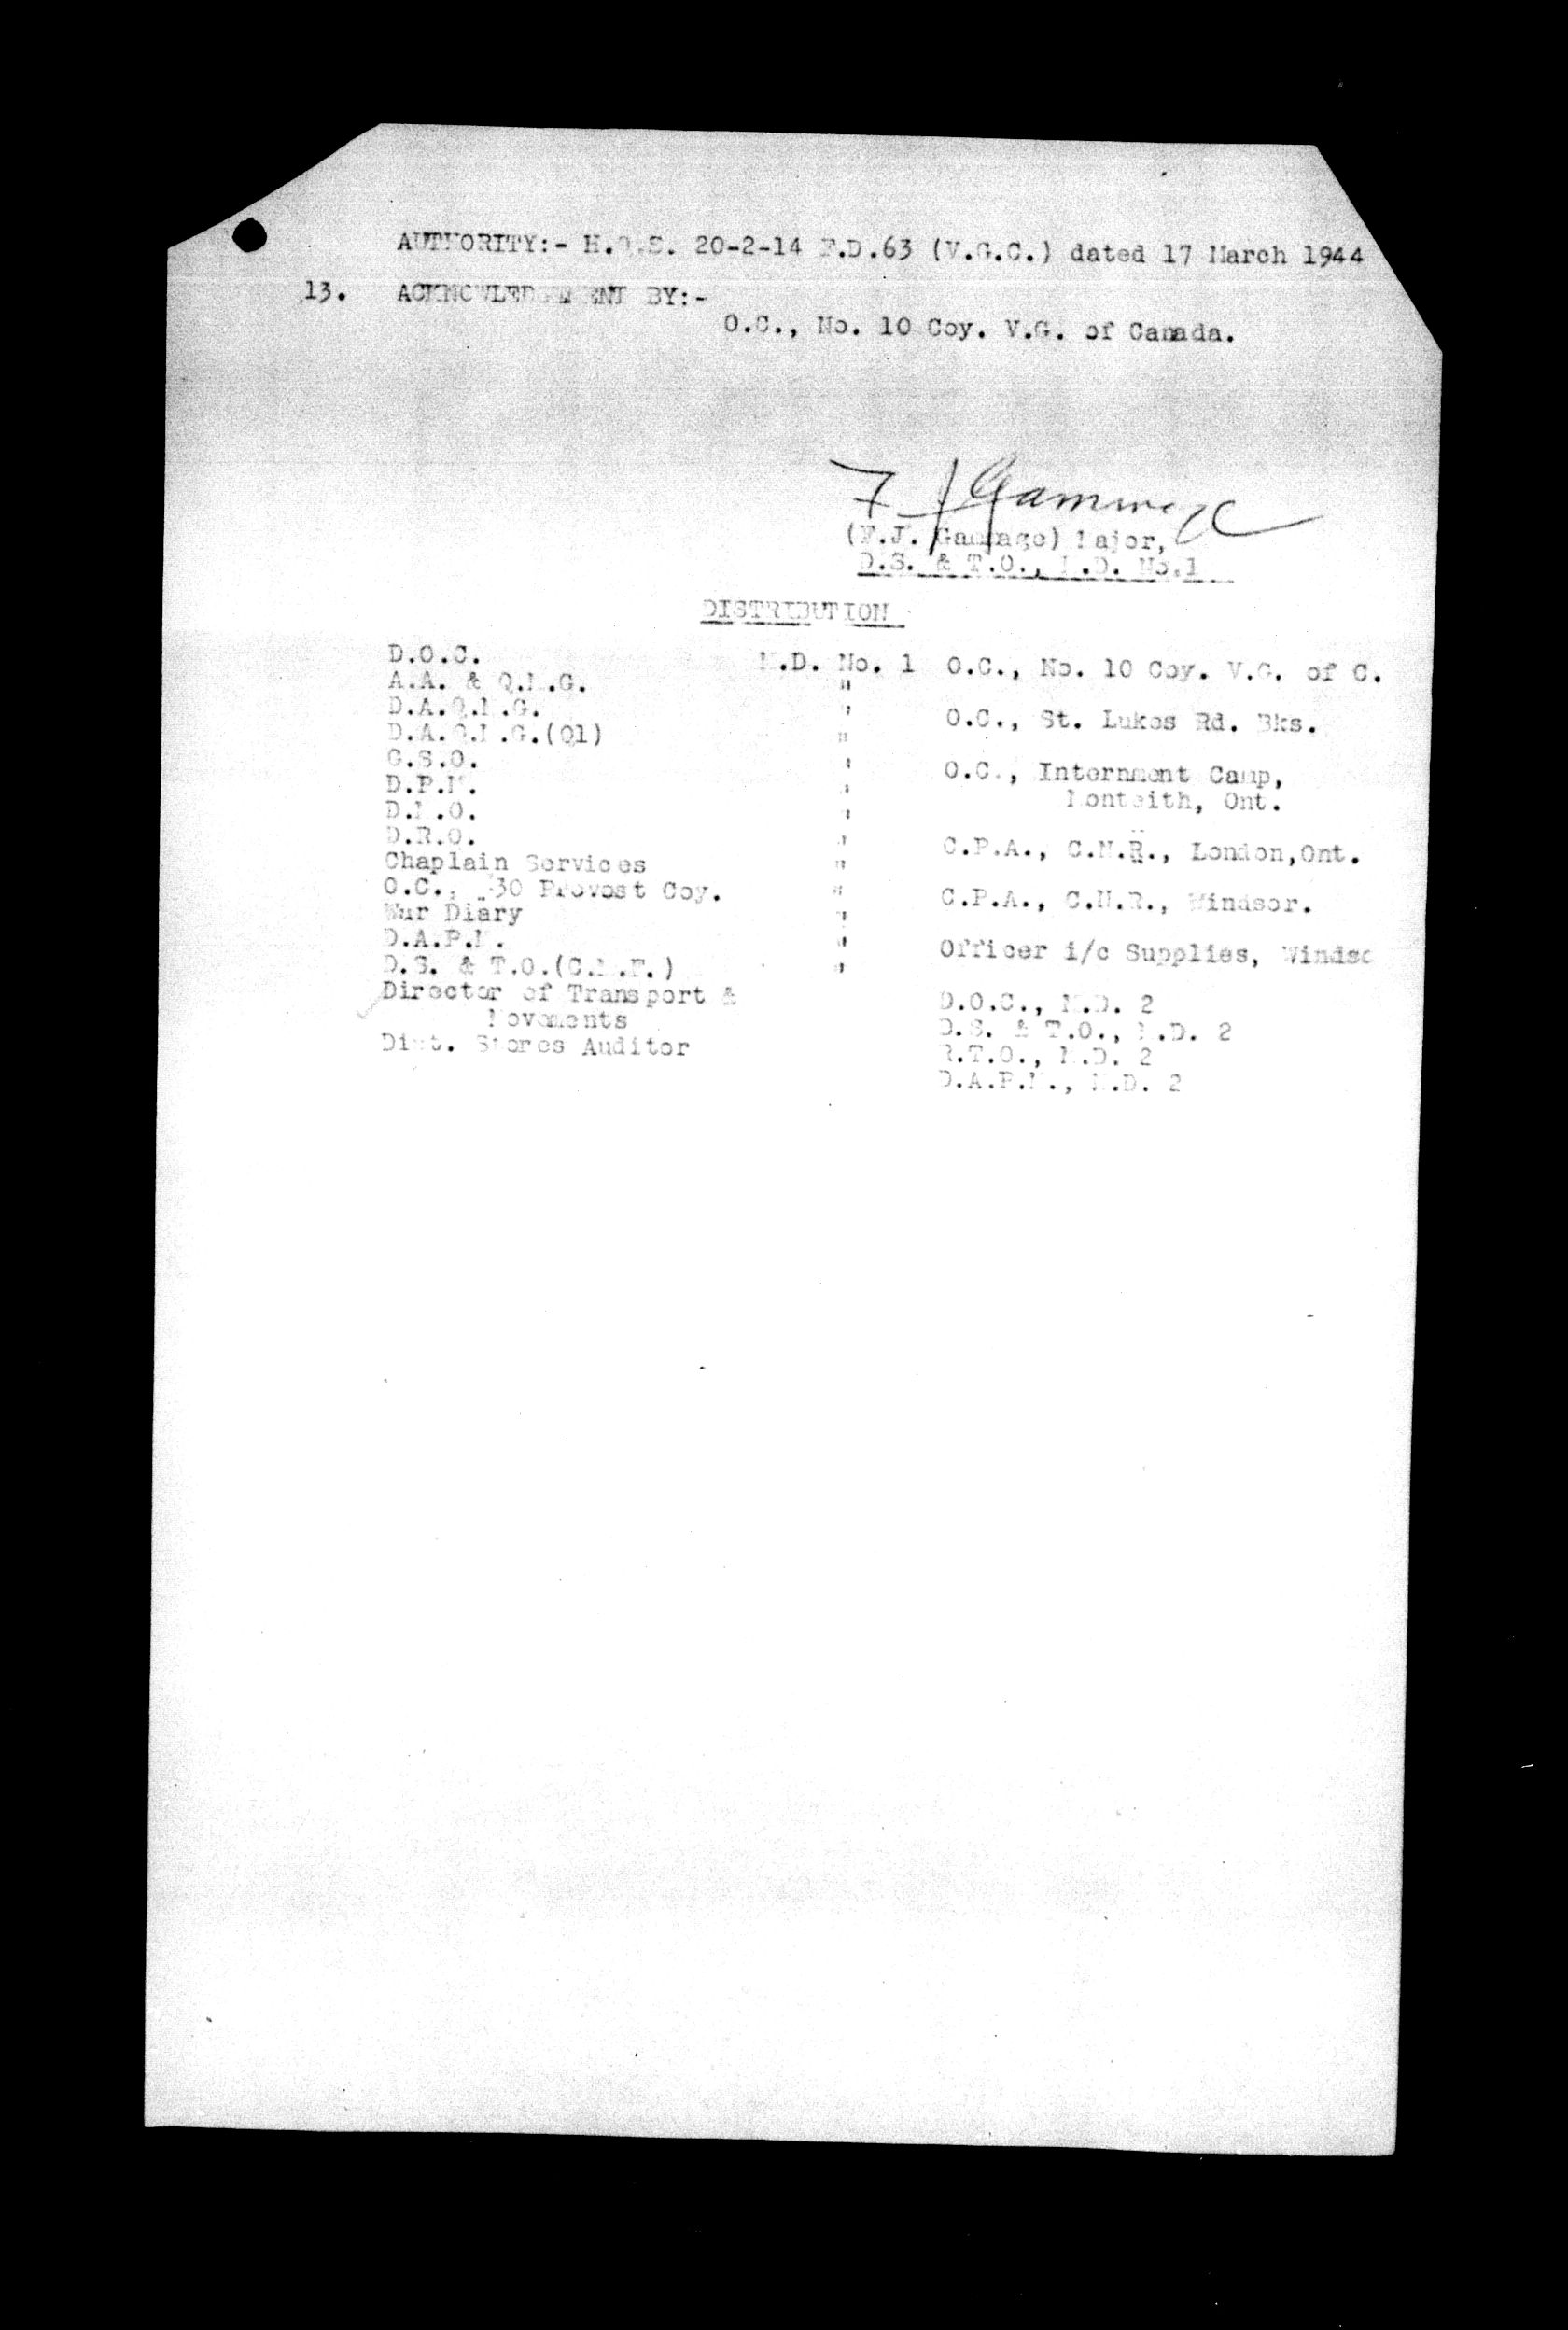 AUTHORITY:- H.Q.S. 20-2-14 F.D.63 (V.G.C.) dated 17 March 1944
13. ACKNOWLEDGEMENT BY:-
O.C., No. 10 Coy. V.G. of Canada.
F J Gammage
(F.J. Gammage) Major,
D.S. & T.O., M.D. No.1
DISTRIBUTION
D.O.C. M.D. No. 1
A.A. & Q.M.G. "
D.A.Q.M.G. "
D.A.Q.M.G.(Q1) "
G.S.O. "
D.P.M. "
D.M.O. "
D.R.O. "
Chaplain Services "
O.C., 30 Provost Coy. "
War Diary "
D.A.P.M. "
D.S. & T.O.(C.M.F.) "
Director of Transport &
Movements
Dist. Stores Auditor
O.C., No. 10 Coy. V.G. of C.
O.C., St. Lukes Rd. Bks.
O.C., Internment Camp,
Monteith, Ont.
C.P.A., C.N.R., London,Ont.
C.P.A., C.N.R., Windsor.
Officer i/c Supplies, Windso
D.O.C., M.D. 2
D.S. & T.O., M.D. 2
R.T.O., M.D. 2
D.A.P.M., M.D. 2